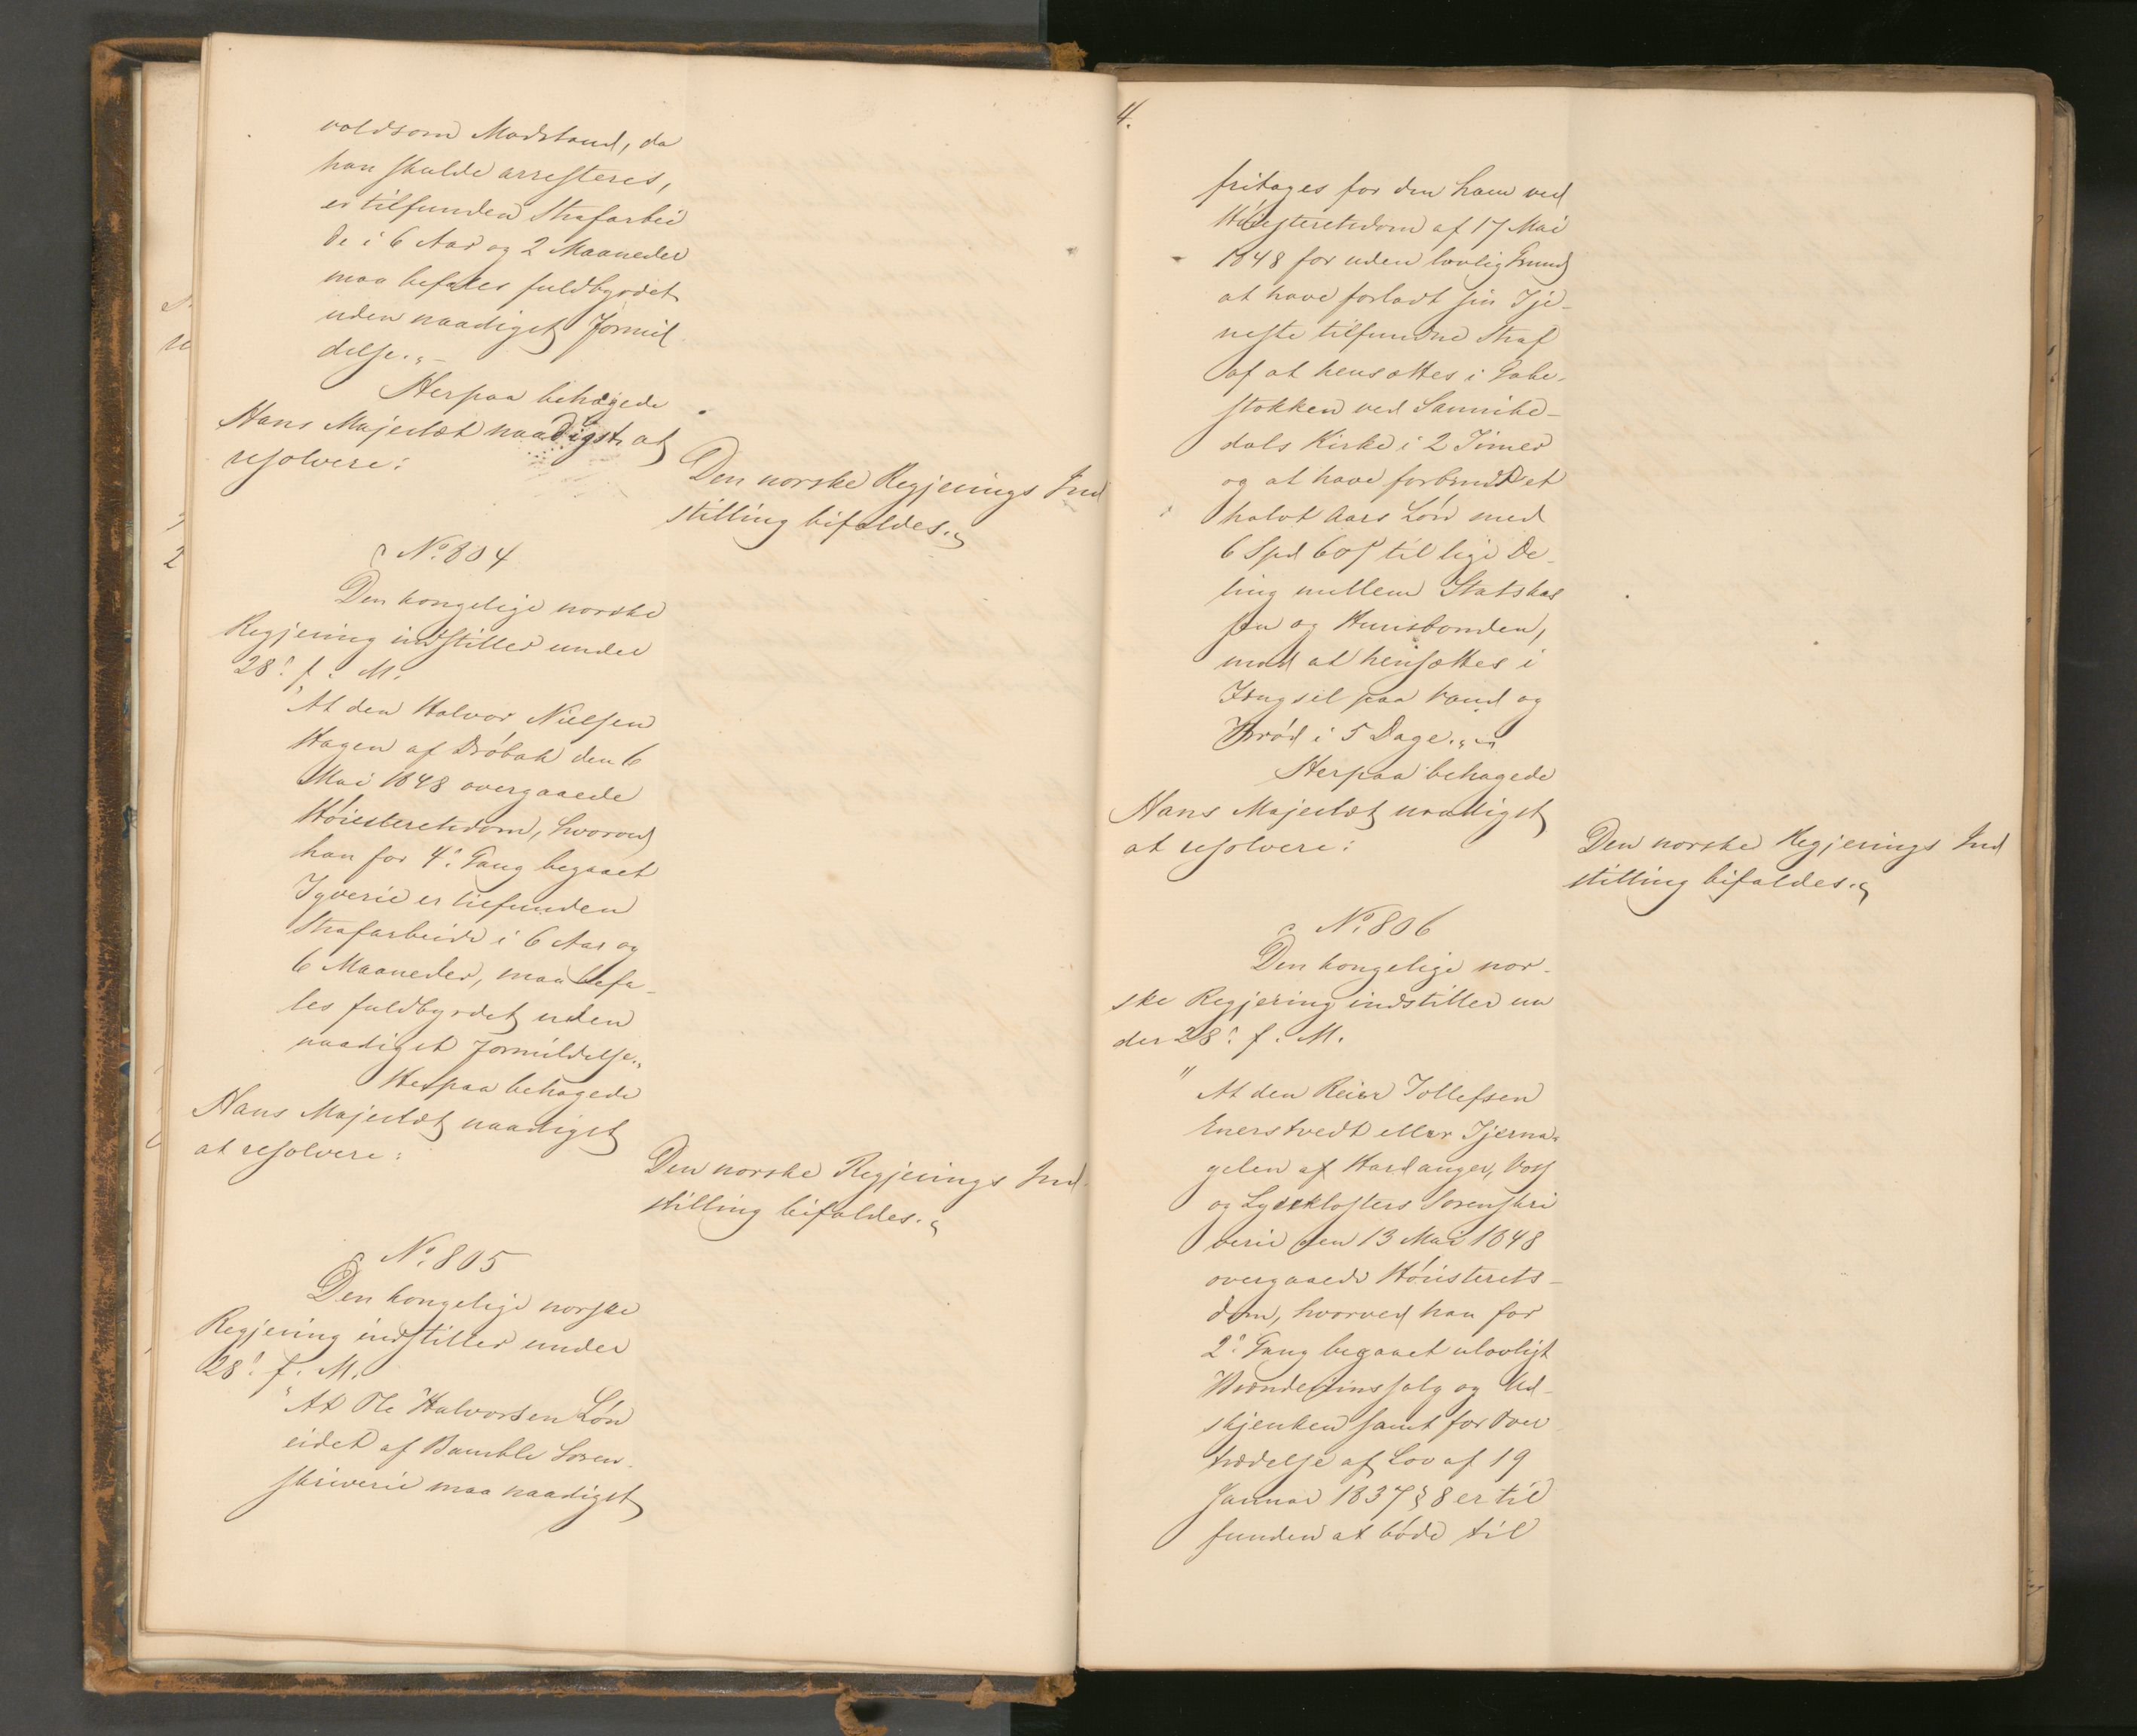 voldsom Modstand, da
han skulde arresteres,
er tilfunden Strafarbei
de i 6 Aar og 2 Maaneder
maa befales fuldbyrdet
uden naadigst Formil
delse.„
Herpaa behagede
Hans Majestæt naadigst at
resolvere:
Den norske Regjerings Ind
stilling bifaldes.„
No. 804
Den kongelige norske
Regjering indstiller under
28. f. M.
"At den Halvor Nielsen
Hagen af Dröbak den 6
Mai 1848 overgaaede
Höiesteretsdom, hvorved
han for 4. Gang begaaet
Tyverie er tilfunden
Strafarbeide i 6 Aar og
6 Maaneder, maa befa-
les fuldbyrdet uden
naadigst Formildelse."
Herpaa behagede
Hans Majestæt naadigst
at resolvere:
Den norske Regjerings Ind-
stilling bifaldes.„
No. 805
Den kongelige norske
Regjering indstiller under
28. f. M.
"At Ole Halvorsen Lön
eidet af Bamble Soren-
skriverie maa naadigst
4.
fritages for den ham ved
Höiesteretsdom af 17 Mai
1848 for uden lovlig Grund
at have forladt sin Tje-
neste tilfundne Straf
af at hensættes i Gabe-
stokken ved Sannike-
dals Kirke i 2 Timer
og at have forbrudt et
halvt Aars Lön med
6 Spd 60 s til lige De-
ling mellem Statskas
sen og Huusbonden,
mod at hensættes i
Fængsel paa Vand og
Bröd i 5 Dage.„
Herpaa behagede
Hans Majestæt naadigst
at resolvere:
Den norske Regjerings Ind
stilling bifaldes.„
No. 806
Den kongelige nor-
ske Regjering indstiller un
der 28. f. M.
"At den Reier Tollefsen
Enerstvedt eller Tjerna-
gelen af Hardanger, Voss
og Lyseklosters Sorenskri
verie den 13 Mai 1848
overgaaede Höiesterets-
dom, hvorved han for
2. Gang begaaet ulovligt
Brændeviinssalg og Ud-
skjenken samt for Over
trædelse af Lov af 19
Januar 1837 § 8 er til
funden at böde til